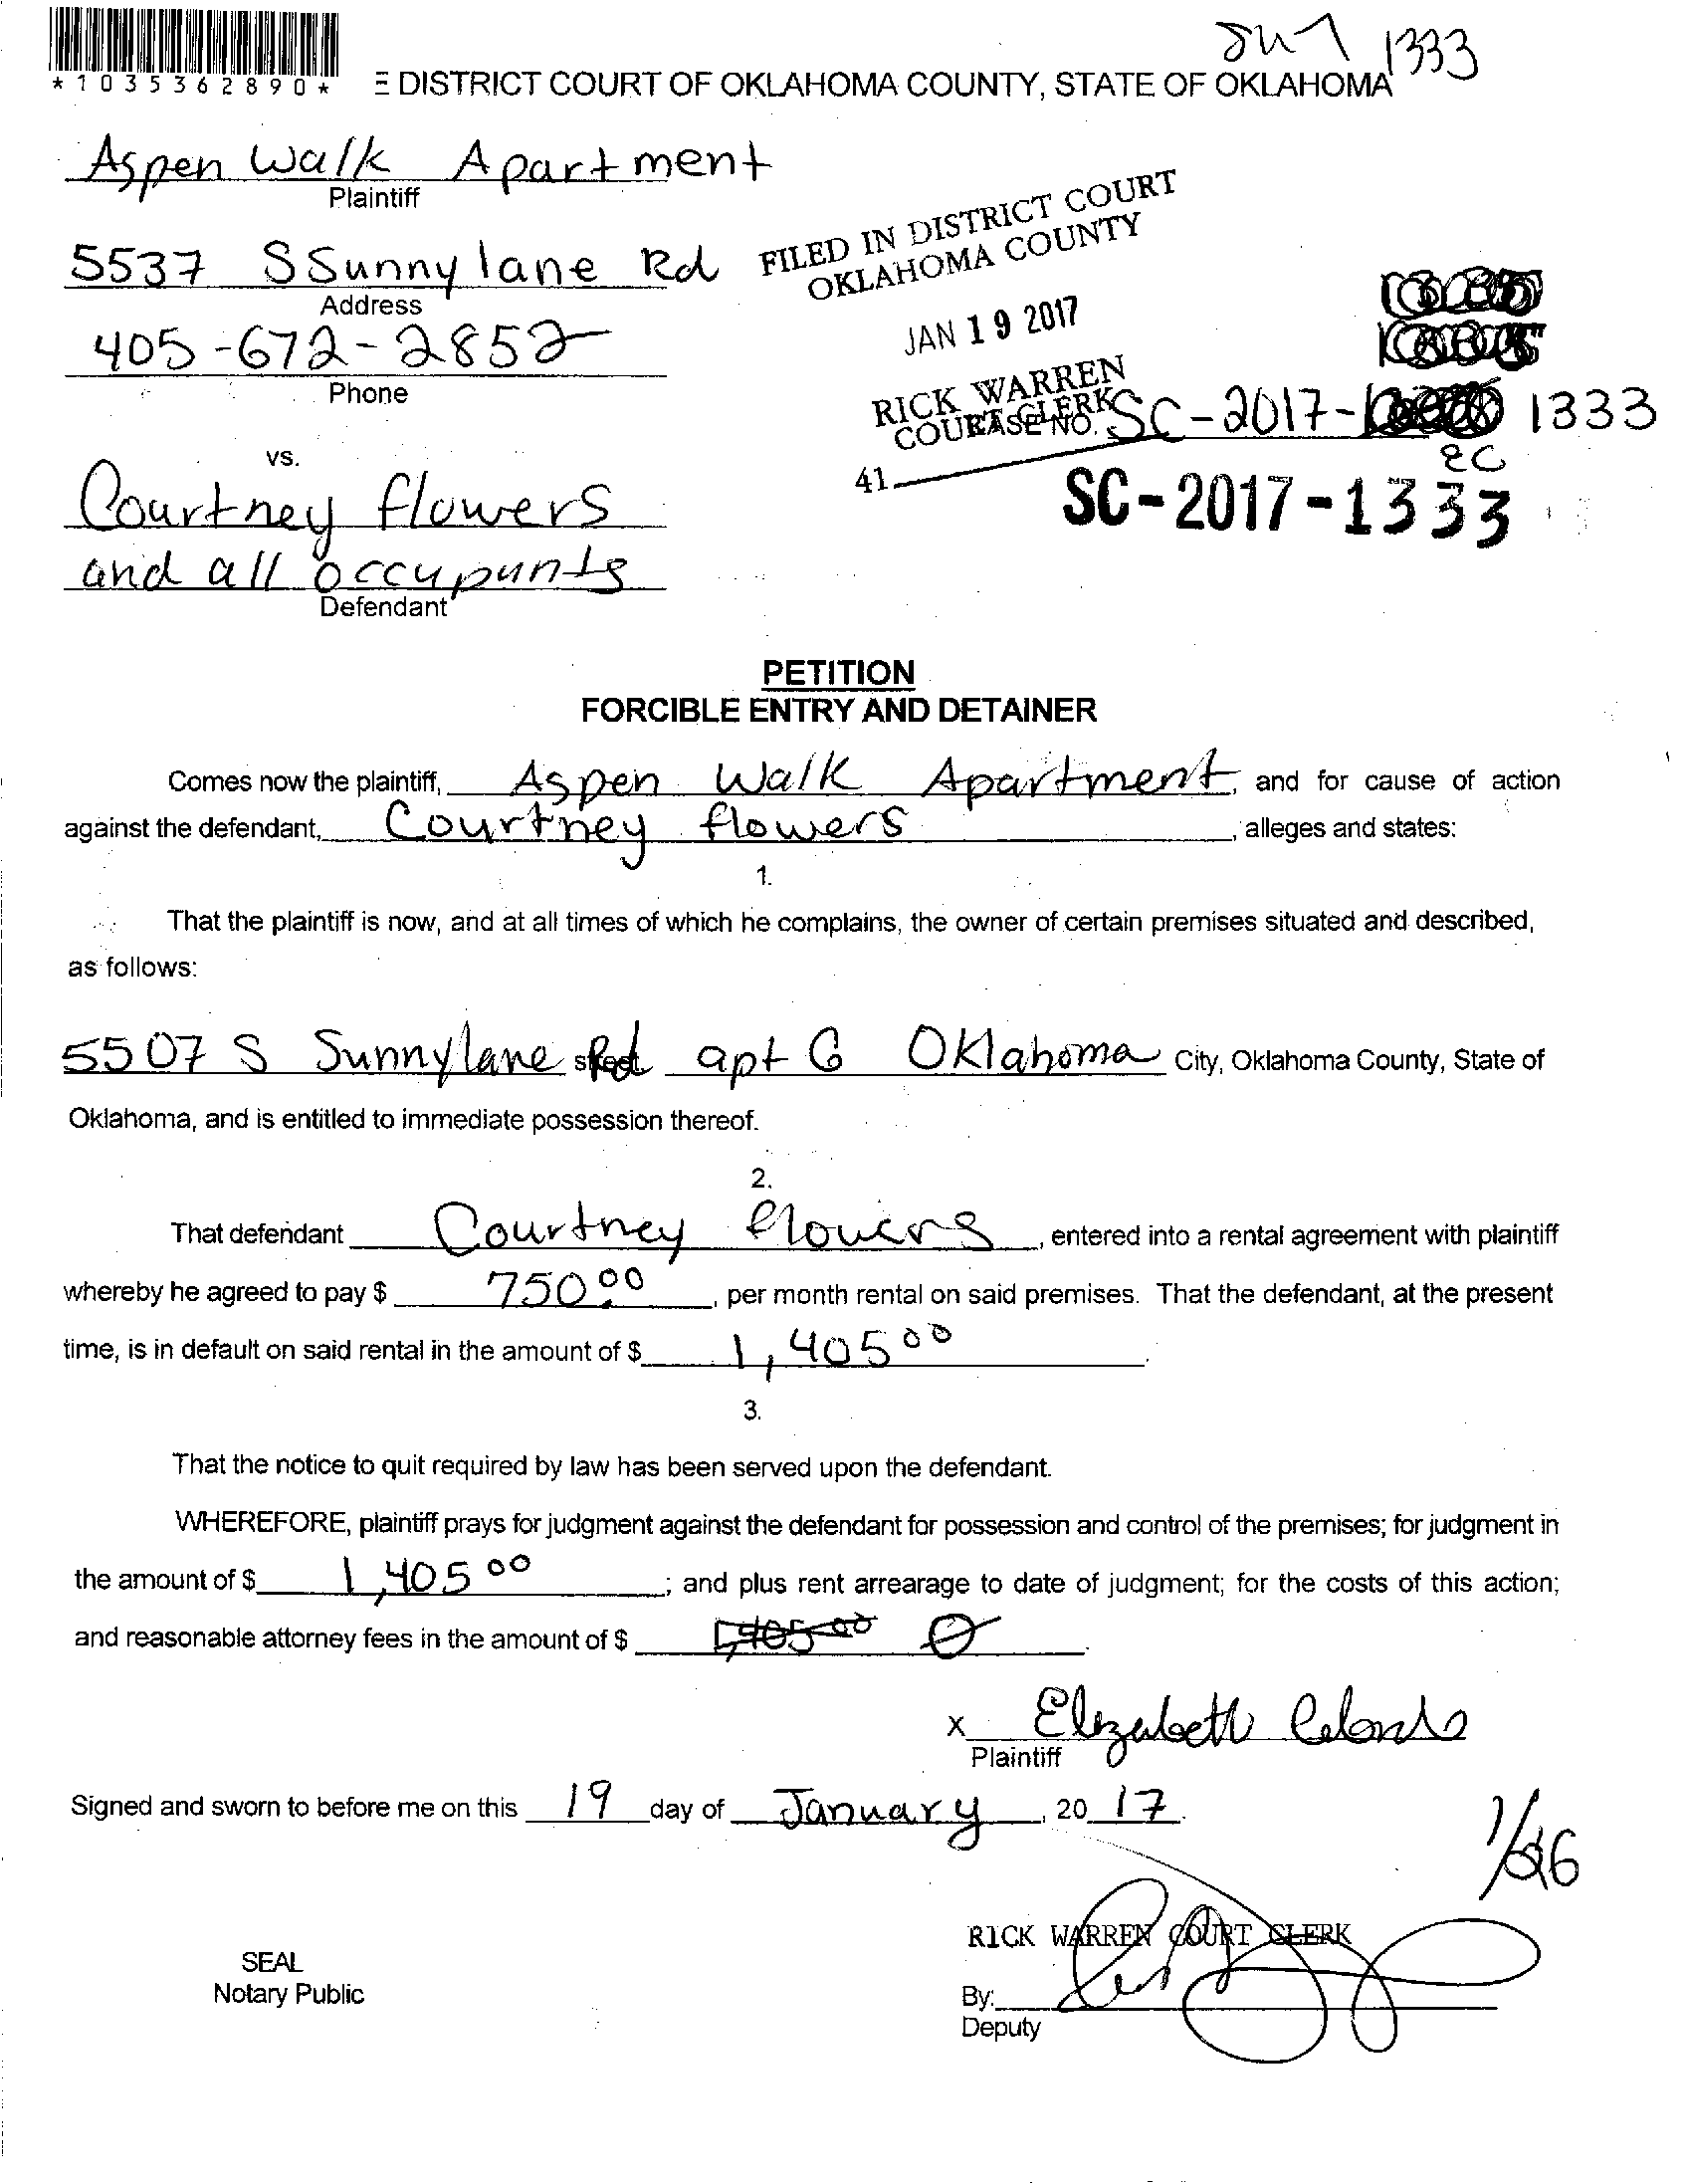 *1035362890*
E DISTRICT COURT OF OKLAHOMA COUNTY, STATE OF OKLAHOMA
1333
Aspen Walk Apartment
Plaintiff
5537 S Sunnylane Rd
Address
405-672-2852
Phone
FILED IN DISTRICT COURT
OKLAHOMA COUNTY
JAN 19 2017
RICK WARREN
COURT CLERK
CASE NO. SC-2017- 1333
41
SC-2017-1333
vs.
Courtney flowers
and all occupants
Defendant
PETITION
FORCIBLE ENTRY AND DETAINER
Comes now the plaintiff, Aspen Walk Apartment, and for cause of action
against the defendant, Courtney flowers, alleges and states:
1.
That the plaintiff is now, and at all times of which he complains, the owner of certain premises situated and described,
as follows:
5507 S Sunnylane Rd apt G Oklahoma City, Oklahoma County, State of
Oklahoma, and is entitled to immediate possession thereof.
2.
That defendant Courtney flowers, entered into a rental agreement with plaintiff
whereby he agreed to pay $ 750.00, per month rental on said premises. That the defendant, at the present
time, is in default on said rental in the amount of $ 1,405 00.
3.
That the notice to quit required by law has been served upon the defendant.
WHEREFORE, plaintiff prays for judgment against the defendant for possession and control of the premises; for judgment in
the amount of $ 1,405 00; and plus rent arrearage to date of judgment; for the costs of this action;
and reasonable attorney fees in the amount of $ 1,405.00 0.
x Elizabeth
Plaintiff
Signed and sworn to before me on this 19 day of January, 2017.
1/26
RICK WARREN COURT CLERK
SEAL
Notary Public
By:
Deputy